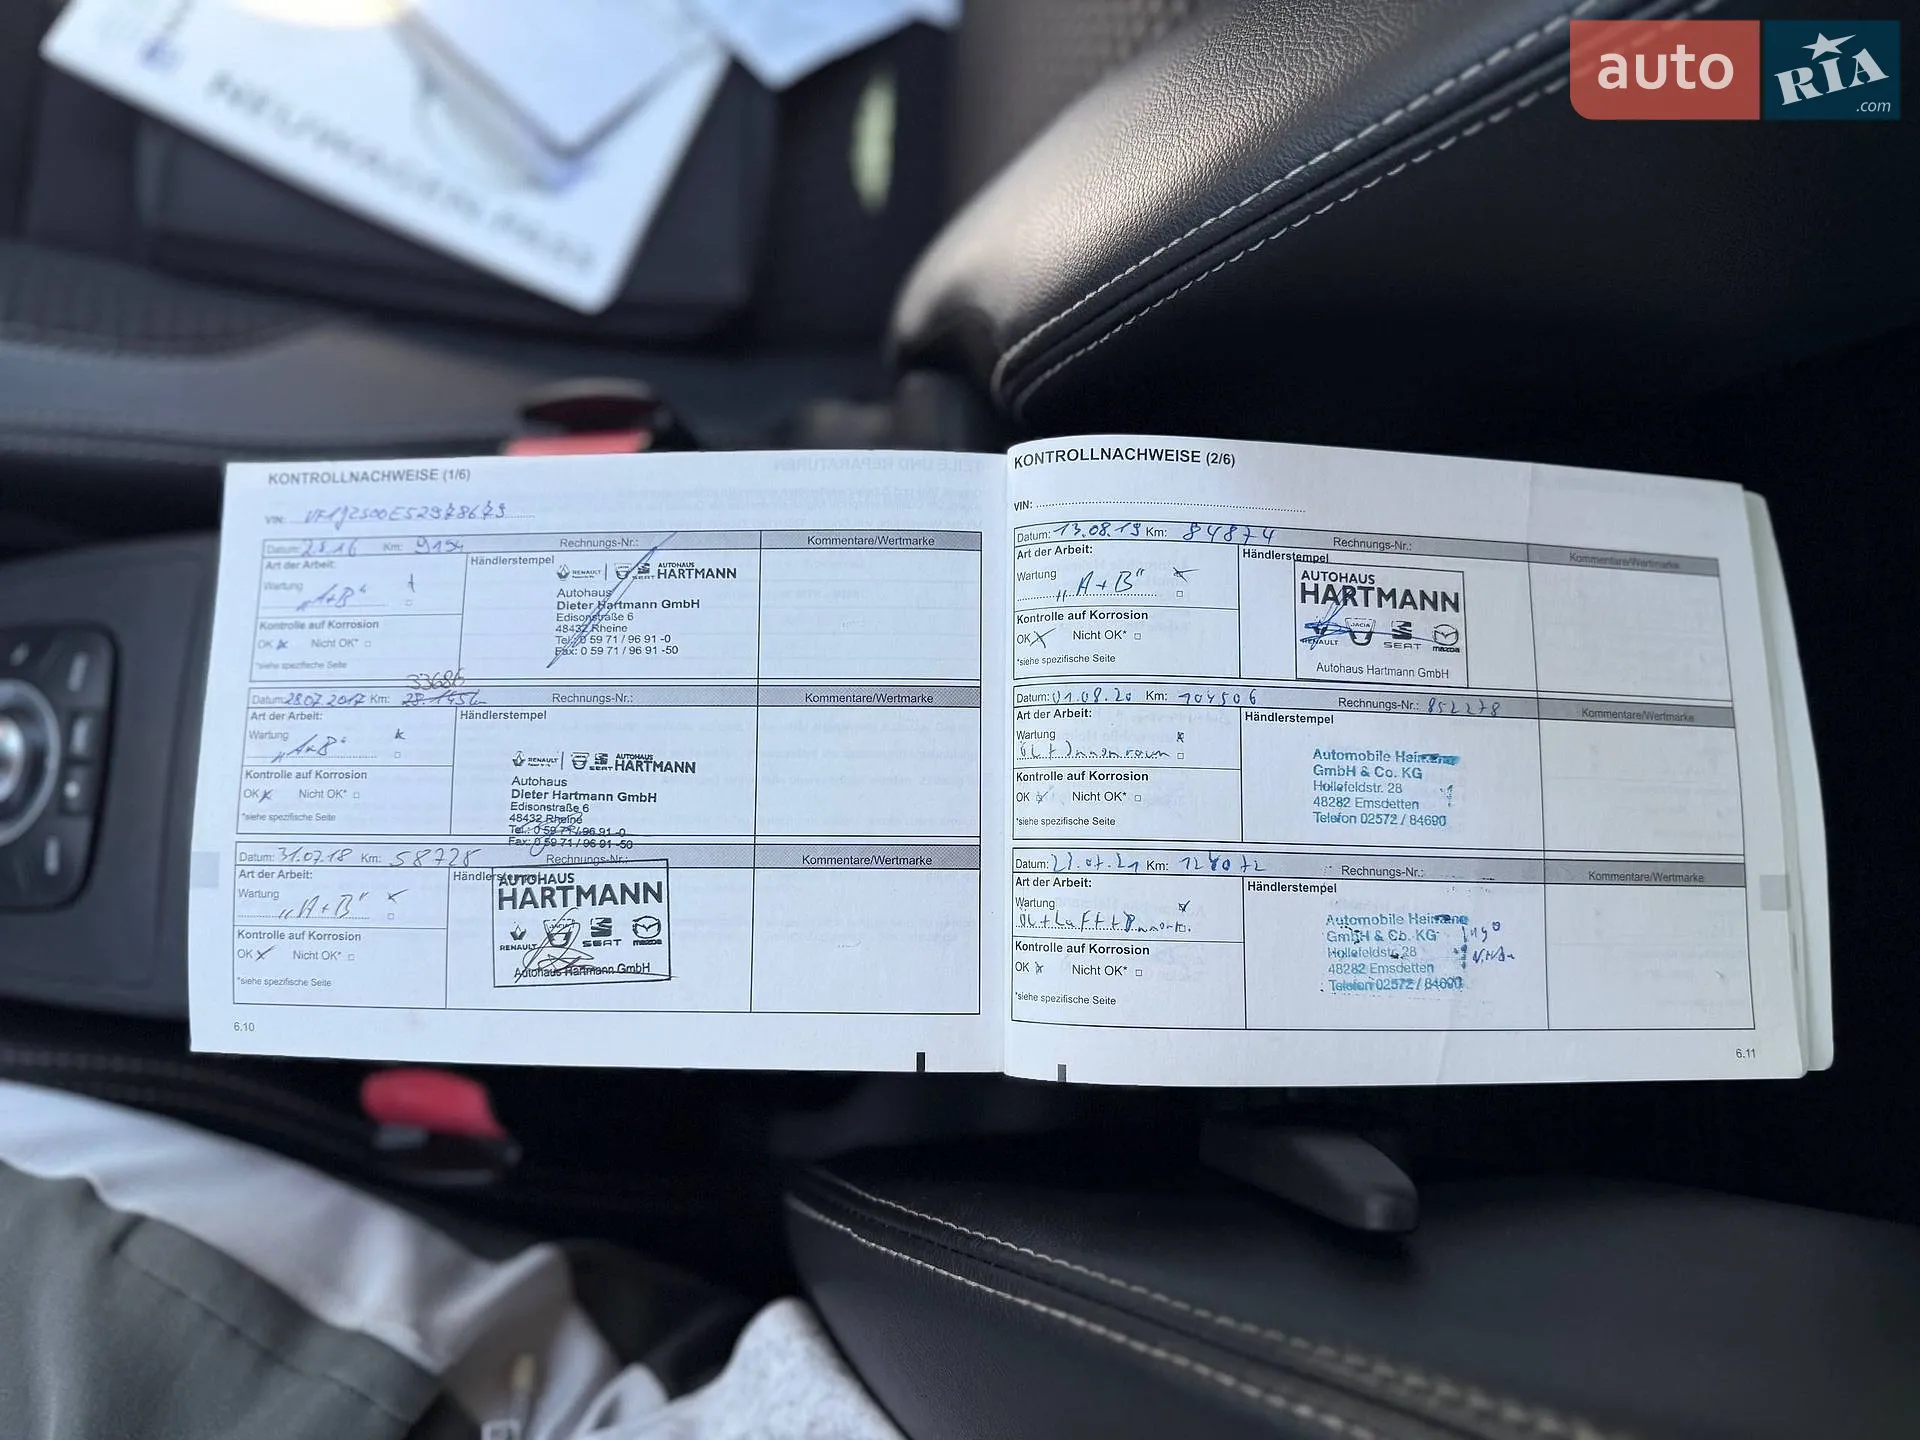 auto RIA .com
NEUWAGEN
KONTROLLNACHWEISE (1/6)
VIN:
Datum: Km: 9154 Rechnungs-Nr.: Kommentare/Wertmarke
Art der Arbeit: Händlerstempel
Wartung
"A+B"
Kontrolle auf Korrosion
OK Nicht OK*
*siehe spezifische Seite
RENAULT SEAT AUTOHAUS HARTMANN
Autohaus
Dieter Hartmann GmbH
Edisonstraße 6
48432 Rheine
Tel.: 0 59 71 / 96 91 -0
Fax: 0 59 71 / 96 91 -50
33686
Datum: 28.07.2017 Km: Rechnungs-Nr.: Kommentare/Wertmarke
Art der Arbeit: Händlerstempel
Wartung
"A+B"
Kontrolle auf Korrosion
OK Nicht OK*
*siehe spezifische Seite
RENAULT SEAT AUTOHAUS HARTMANN
Autohaus
Dieter Hartmann GmbH
Edisonstraße 6
48432 Rheine
Tel.: 0 59 71 / 96 91 -0
Fax: 0 59 71 / 96 91 -50
Datum: 31.07.18 Km: 58728 Rechnungs-Nr.: Kommentare/Wertmarke
Art der Arbeit: Händlerstempel
Wartung
"A+B"
Kontrolle auf Korrosion
OK Nicht OK*
*siehe spezifische Seite
AUTOHAUS
HARTMANN
RENAULT DACIA SEAT mazda
Autohaus Hartmann GmbH
6.10
KONTROLLNACHWEISE (2/6)
VIN:
Datum: 13.08.19 Km: 84874 Rechnungs-Nr.: Kommentare/Wertmarke
Art der Arbeit: Händlerstempel
Wartung
"A+B"
Kontrolle auf Korrosion
OK Nicht OK*
*siehe spezifische Seite
AUTOHAUS
HARTMANN
RENAULT DACIA SEAT mazda
Autohaus Hartmann GmbH
Datum: 01.08.20 Km: 104506 Rechnungs-Nr.: 852278 Kommentare/Wertmarke
Art der Arbeit: Händlerstempel
Wartung
Öl + Innenraum
Kontrolle auf Korrosion
OK Nicht OK*
*siehe spezifische Seite
Automobile
GmbH & Co. KG
Hollefeldstr. 28
48282 Emsdetten
Telefon 02572 / 84690
Datum: Km: Rechnungs-Nr.: Kommentare/Wertmarke
Art der Arbeit: Händlerstempel
Wartung
Öl + Luft +
Kontrolle auf Korrosion
OK Nicht OK*
*siehe spezifische Seite
Automobile
GmbH & Co. KG
Hollefeldstr. 28
48282 Emsdetten
Telefon 02572 / 84690
6.11